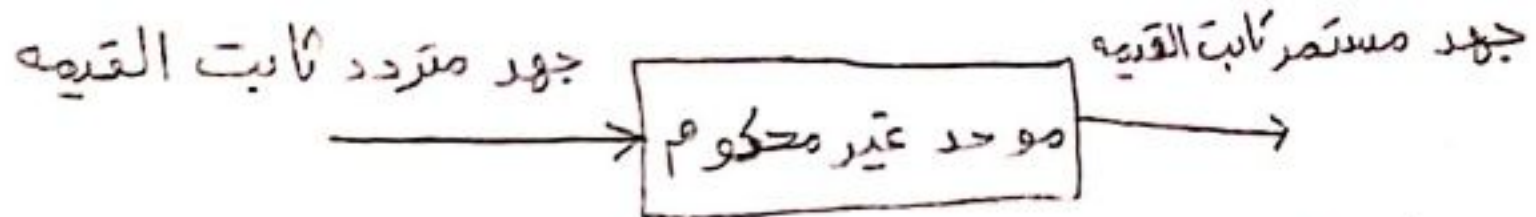 جهد متردد ثابت القيمه
موحد غير محكوم
جهد مستمر ثابت القيمه